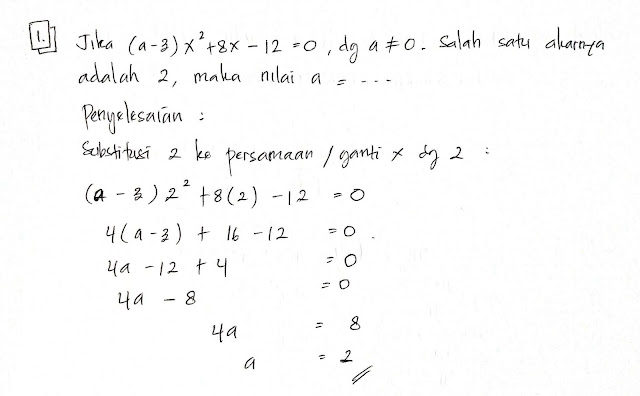 1. Jika (a-3)x²+8x-12=0, dg a≠0. Salah satu akarnya
adalah 2, maka nilai a = ...
Penyelesaian :
Substitusi 2 ke persamaan / ganti x dg 2 :
(a-3)2²+8(2)-12 = 0
4(a-3)+16-12 = 0.
4a-12+4 = 0
4a-8 = 0
4a = 8
a = 2 //